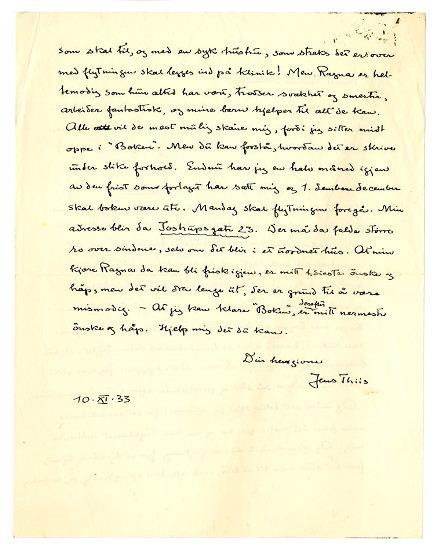 som skal til, og med en syk hustru, som straks det er over
med flytningen skal legges ind på klinik! Men Ragna er hel-
temodig som hun altid har vært, trodser svakhet og smerter,
arbeider fantastisk, og mine barn hjelper til alt de kan.
Alle vil de mest mulig skåne mig, fordi jeg sitter midt
oppe i "Boken". Men du kan forstå, hvordan det er å skrive
under slike forhold. Endnu har jeg en halv måned igjen
av den frist som forlaget har satt mig og 1. december
skal boken være ute. Mandag skal flytningen foregå. Min
adresse blir da Josefinesgate 23. Der må da falde større
ro over sindene, selv om det blir i et uordnet hus. At min
kjære Ragna da kan bli frisk igjen, er mitt høieste ønske og
håp, men det vil dra lenge ut, der er grund til å være
mismodig. – At jeg kan klare "Boken", er derefter mitt nermeste
ønske og håp. Hjelp mig det du kan.
Din hengivne
Jens Thiis
10·XI·33